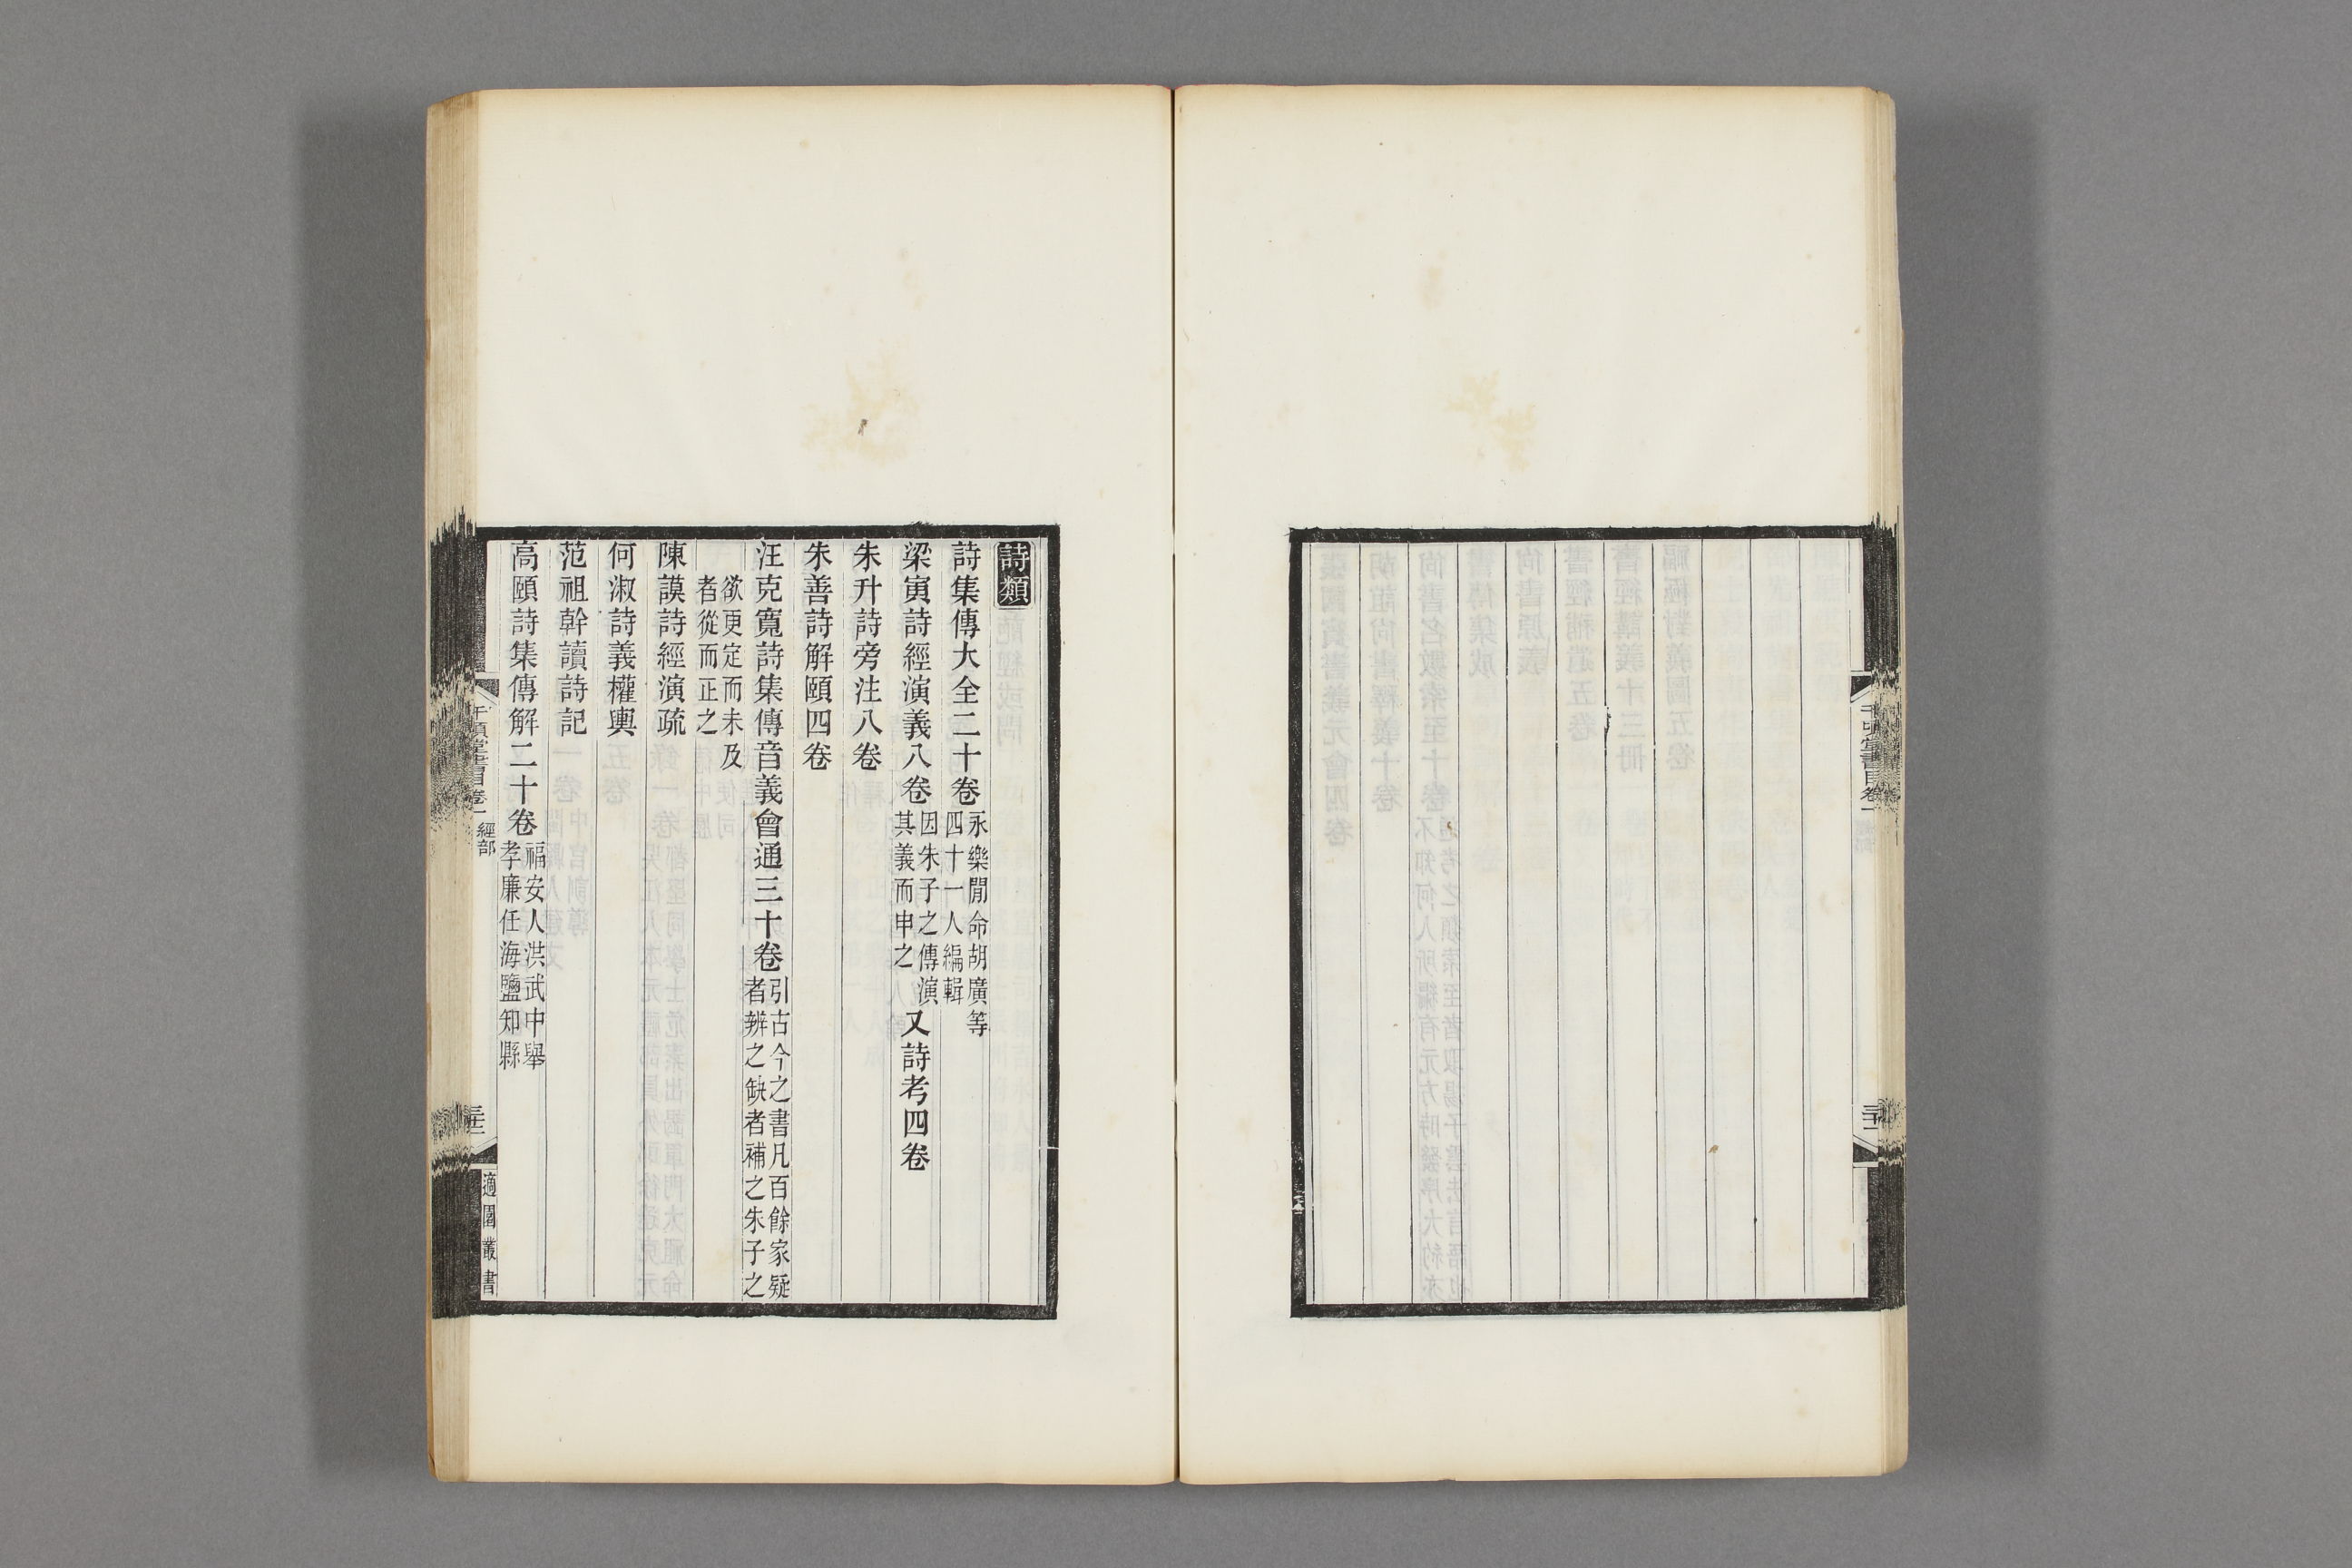 詩類
詩集傳大全二十卷永樂閒命胡廣等四十一人編輯
梁寅詩經演義八卷因朱子之傳演其義而申之又詩考四卷
朱升詩旁注八卷
朱善詩解頤四卷
汪克寬詩集傳音義會通三十卷引古今之書凡百餘家疑者辨之缺者補之朱子之
欲更定而未及者從而正之
陳謨詩經演疏
何淑詩義權輿
范祖幹讀詩記
高頤詩集傳解二十卷福安人洪武中舉孝廉任海鹽知縣
千頃堂書目卷一
經部
適園叢書